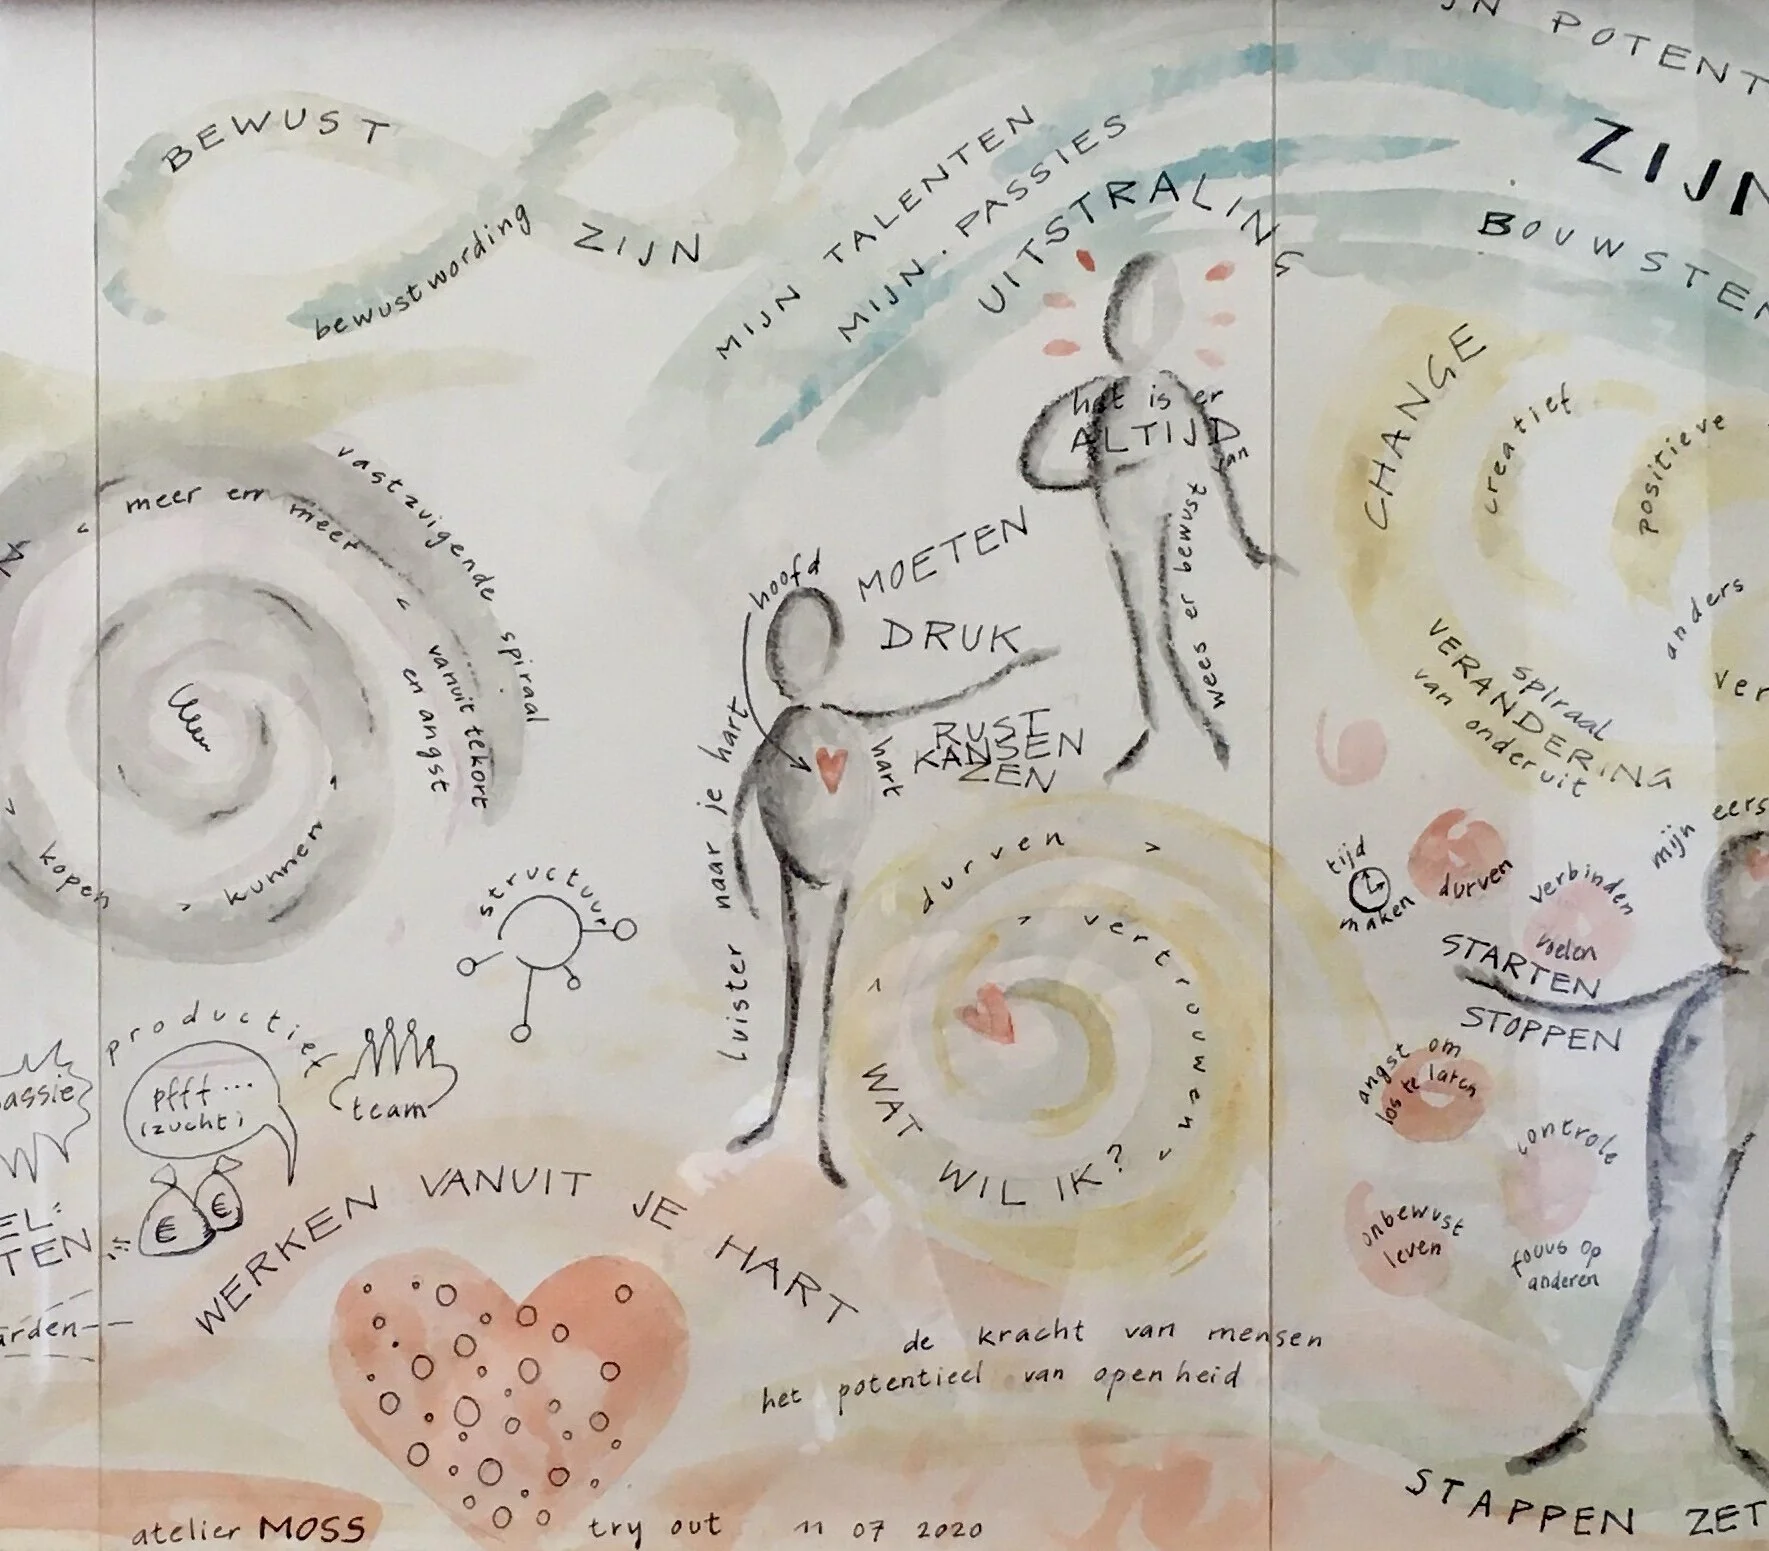 BEWUST
ZIJN
bewustwording
MIJN TALENTEN
MIJN PASSIES
UITSTRALING
JN POTENT
ZIJN
BOUWSTEN
het is er
ALTIJD
wees er bewust
van
CHANGE
creatief
positieve
anders
ver
spiraal
VERANDERING
van onderuit
vastzuigende spiraal
meer en meer
vanuit tekort
en angst
kopen
kunnen
hoofd
luister naar je hart
hart
MOETEN
DRUK
RUST
KANSEN
ZEN
durven
vertrouwen
WAT
WIL IK?
structuur
productief
pfft...
(zucht)
team
assie
EL:
TEN
€ €
arden
WERKEN VANUIT JE HART
de kracht van mensen
het potentieel van openheid
tijd
maken
durven
verbinden
voelen
mijn
eers
STARTEN
STOPPEN
angst om
los te laten
controle
onbewust
leven
focus op
anderen
STAPPEN ZET
atelier MOSS
try out 11 07 2020